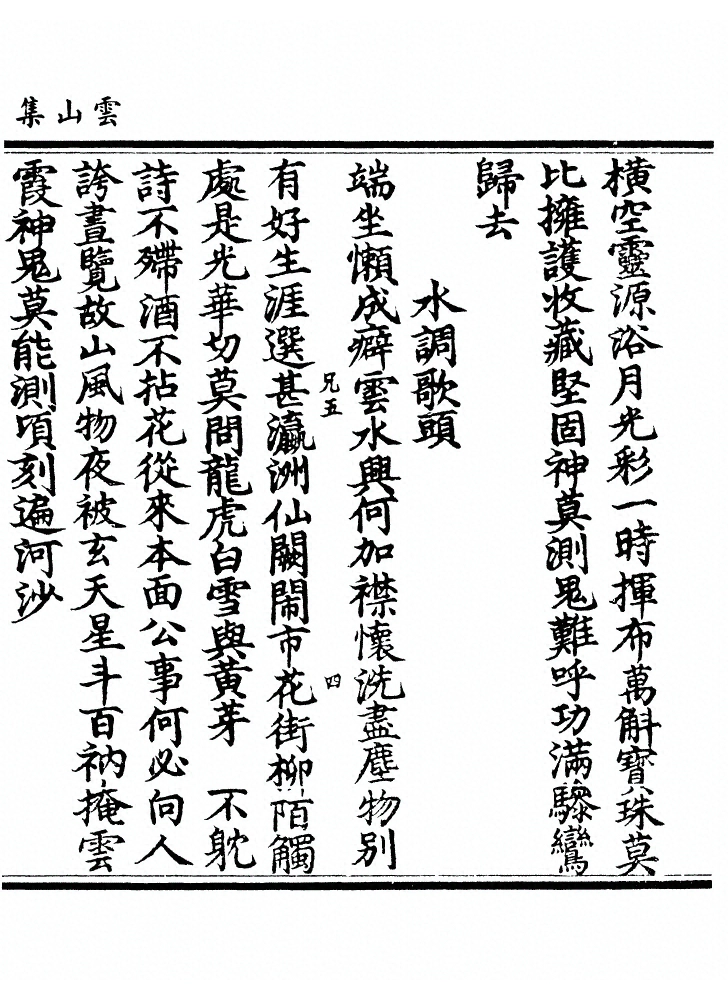 雲山集
橫空靈源浴月光彩一時揮布萬斛寶珠莫
比擁護收藏堅固神莫測鬼難呼功滿驂鸞
歸去
水調歌頭
端坐懶成癖雲水興何加襟懷洗盡塵物別
兄五
四
有好生涯選甚瀛洲仙闕鬧市花街柳陌觸
處是光華切莫問龍虎白雪與黃芽　不躭
詩不殢酒不拈花從來本面公事何必向人
誇晝覽故山風物夜被玄天星斗百衲掩雲
霞神鬼莫能測頃刻遍河沙